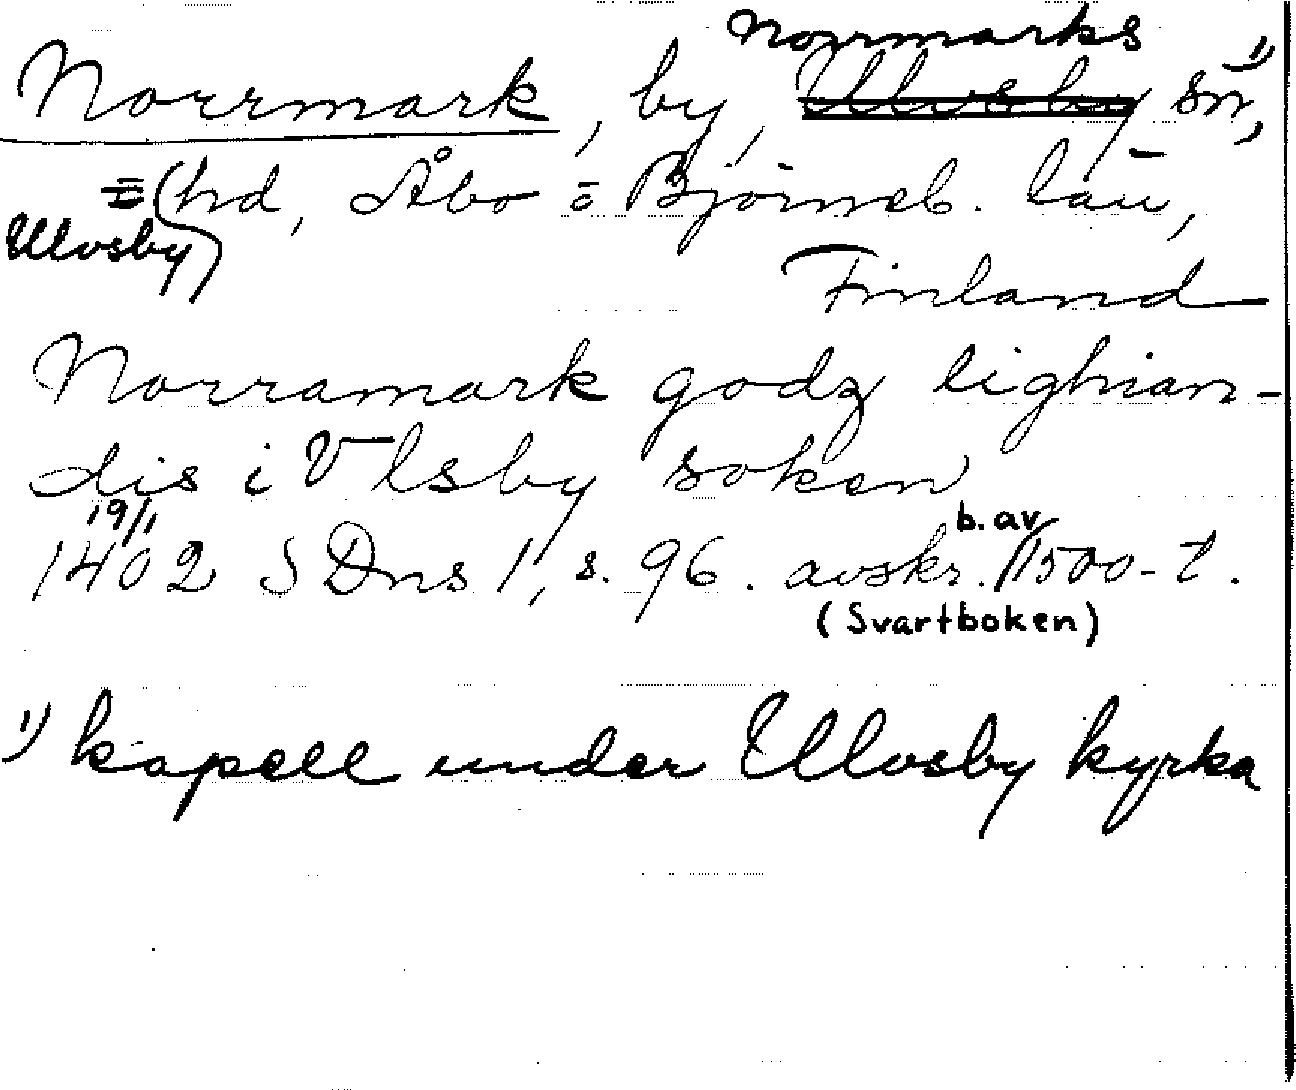 Norrmarks
Norrmark, by, Ulvsby sn, 1)
= (hd, Åbo = Björneb. län,
Ulvsby)
Finland
Norramark godz lighian-
dis i Vlsby soken
19/1
1402 SDns 1, s. 96. avskr. b. av 1500-t.
(Svartboken)
1) kapell under Ulvsby kyrka